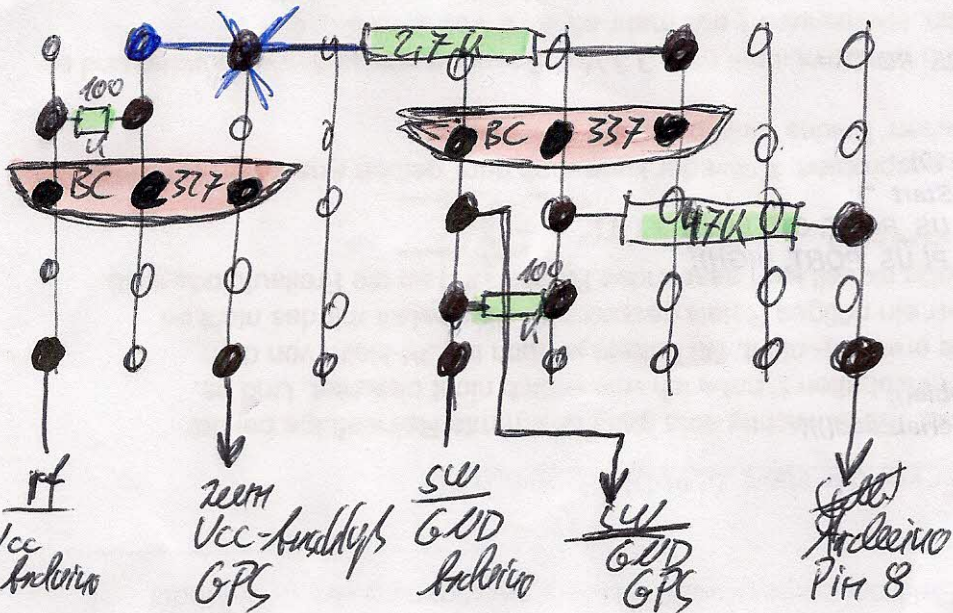 2,7K
100
K
BC 337
BC 327
47K
100
K
rt
Vcc
Arduino
zum
Vcc-Anschluß
GPS
sw
GND
Arduino
sw
GND
GPS
Arduino
Pin 8